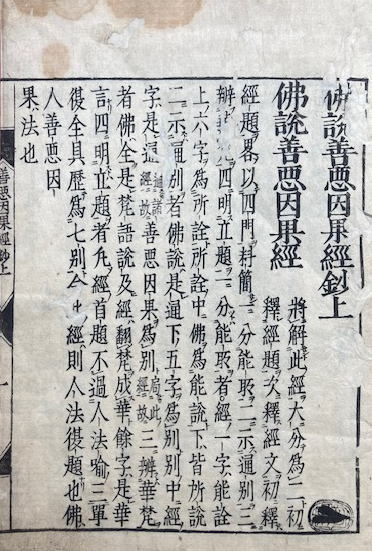 佛說善惡因果經鈔上
佛說善惡因果經
將解此經大分爲二初
釋經題次釋經文初釋
經題畧以四門料簡一分能所二示通別三
辨華梵四明立題一分能所者經一字能詮
上六字爲所詮中佛爲能說下皆所說
二示通別者佛說是通下五字爲別別中經
字是通通諸經故善惡因果爲別局此經故三辨華梵
者佛全是梵語說及經翻梵成華餘字是華
言四明立題者凡經首題不過人法喻三單
復全具歷爲七別今經則人法復題也佛
人善惡因
果法也
善惡因果經鈔上
一